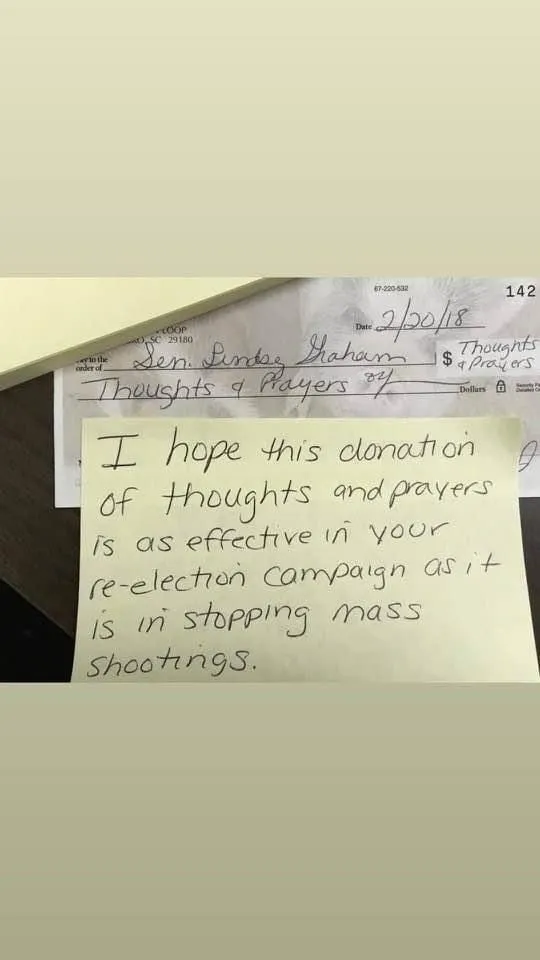 67-220-532
142
LOOP
SC 29180
Date 2/20/18
Pay to the
order of Sen. Lindsey Graham $ Thoughts
& Prayers
Thoughts & Prayers Dollars
I hope this donation
of thoughts and prayers
is as effective in your
re-election campaign as it
is in stopping mass
shootings.